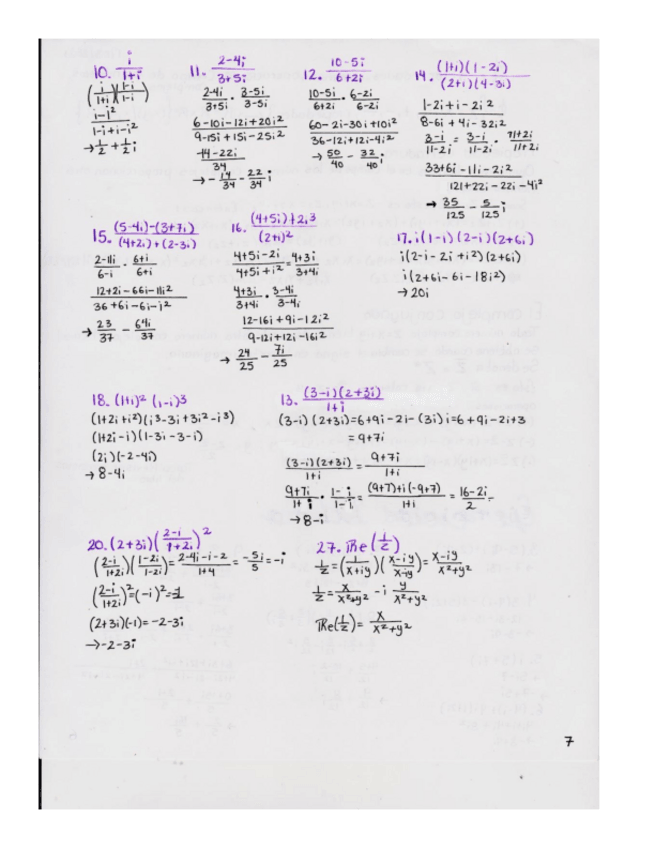 10. i/(1+i)
(i/(1+i))((1-i)/(1-i))
(i-i²)/(1-i+i-i²)
→ 1/2 + 1/2 i
11. (2-4i)/(3+5i)
(2-4i)/(3+5i) · (3-5i)/(3-5i)
(6-10i-12i+20i²)/(9-15i+15i-25i²)
(-14-22i)/34
→ - 14/34 - 22/34 i
12. (10-5i)/(6+2i)
(10-5i)/(6+2i) · (6-2i)/(6-2i)
(60-2i-30i+10i²)/(36-12i+12i-4i²)
→ 50/40 - 32/40 i
14. (1+i)(1-2i)/(2+i)(4-3i)
(1-2i+i-2i²)/(8-6i+4i-3i²)
(3-i)/(11-2i) = (3-i)/(11-2i) · (11+2i)/(11+2i)
(33+6i-11i-2i²)/(121+22i-22i-4i²)
→ 35/125 - 5/125 i
15. (5-4i)-(3+7i)/(4+2i)+(2-3i)
(2-11i)/(6-i) · (6+i)/(6+i)
(12+2i-66i-11i²)/(36+6i-6i-i²)
→ 23/37 - 64i/37
16. (4+5i)+2i³/(2+i)²
(4+5i-2i)/(4+5i+i²) = (4+3i)/(3+4i)
(4+3i)/(3+4i) · (3-4i)/(3-4i)
(12-16i+9i-12i²)/(9-12i+12i-16i²)
→ 24/25 - 7i/25
17. i(1-i)(2-i)(2+6i)
i(2-i-2i+i²)(2+6i)
i(2+6i-6i-18i²)
→ 20i
18. (1+i)² (1-i)³
(1+2i+i²)(i³-3i+3i²-i³)
(1+2i-i)(1-3i-3-i)
(2i)(-2-4i)
→ 8-4i
13. (3-i)(2+3i)/1+i
(3-i)(2+3i)=6+9i-2i-(3i)i=6+9i-2i+3
= 9+7i
(3-i)(2+3i)/1+i = (9+7i)/(1+i)
(9+7i)/(1+i) · (1-i)/(1-i) = (9+7)+i(-9+7)/1+i = (16-2i)/2 =
→ 8-i
20. (2+3i)((2-i)/(1+2i))²
((2-i)/(1+2i))((1-2i)/(1-2i)) = (2-4i-i-2)/(1+4) = -5i/5 = -i
((2-i)/(1+2i))²=(-i)²=-1
(2+3i)(-1)=-2-3i
→ -2-3i
27. Re(1/z)
1/z = (1/(x+iy))((x-iy)/(x-iy)) = (x-iy)/(x²+y²)
1/z = x/(x²+y²) - i y/(x²+y²)
Re(1/z) = x/(x²+y²)
7